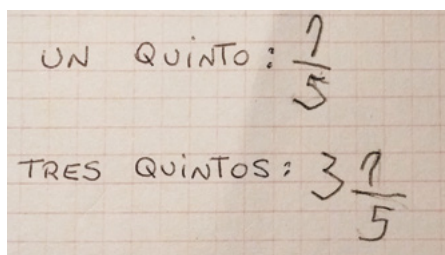 UN QUINTO: 1/5
TRES QUINTOS: 3 1/5